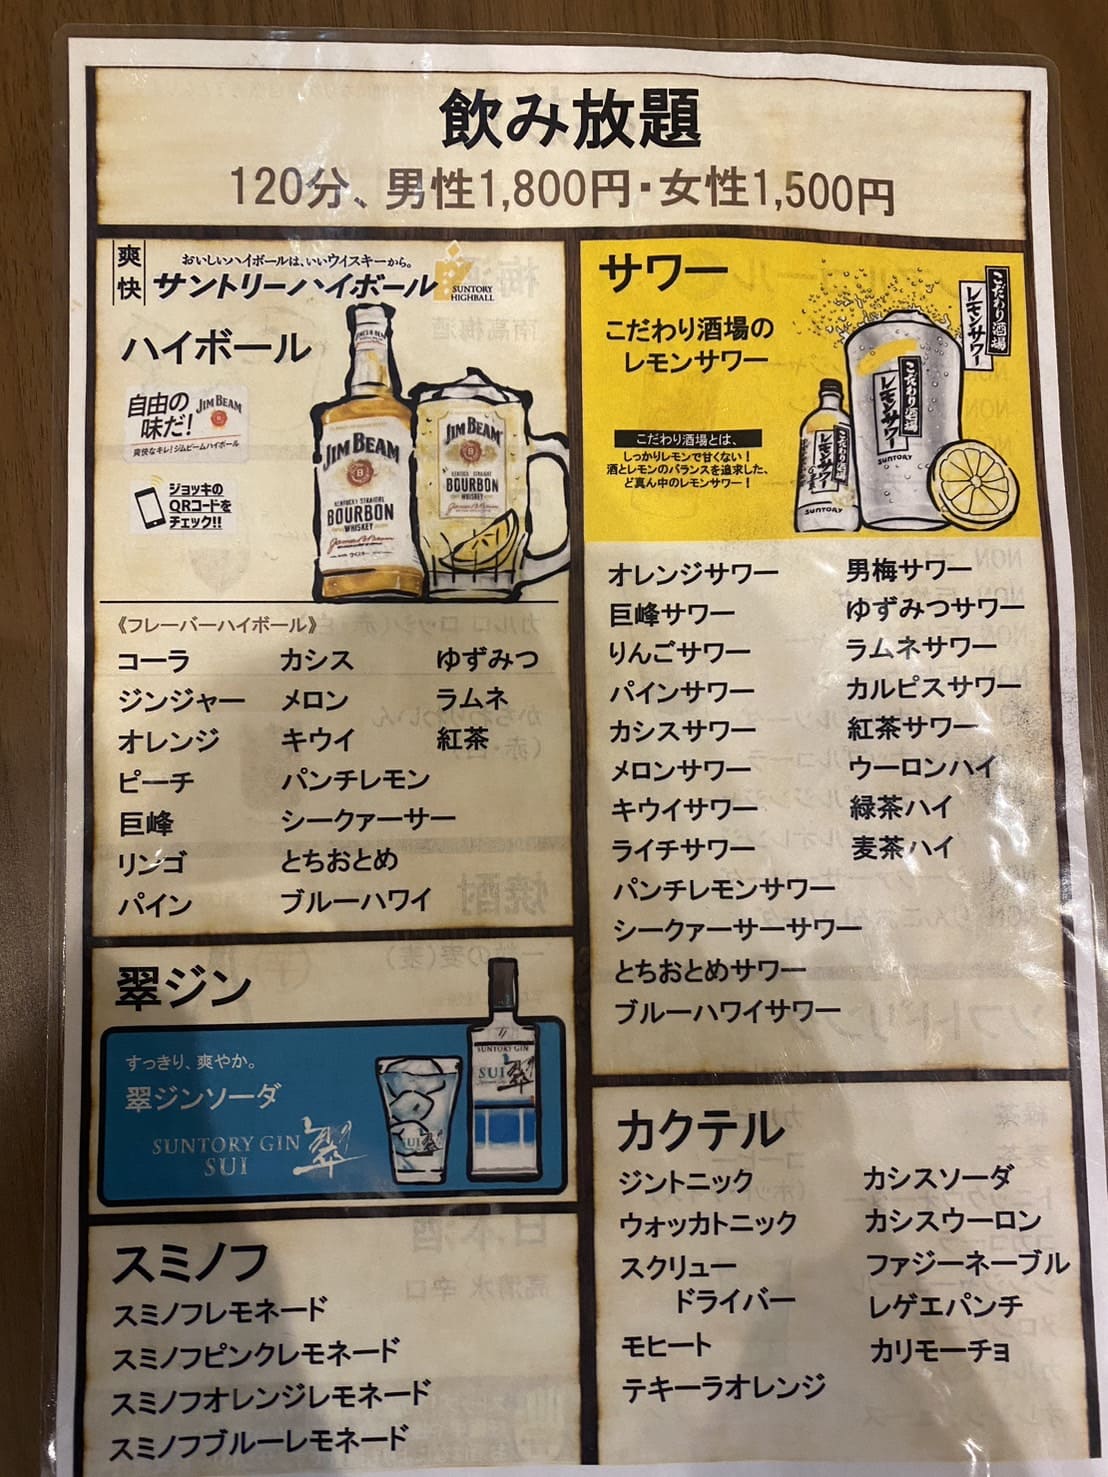 飲み放題
120分、男性1,800円・女性1,500円
爽快
おいしいハイボールは、いいウイスキーから。
サントリーハイボール
SUNTORY
HIGHBALL
ハイボール
自由の
味だ!
JIM BEAM
爽快なキレ!ジムビームハイボール
ジョッキの
QRコードを
チェック!!
JIM BEAM
KENTUCKY STRAIGHT
BOURBON
WHISKEY
JIM BEAM
KENTUCKY STRAIGHT
BOURBON
WHISKEY
《フレーバーハイボール》
コーラ カシス ゆずみつ
ジンジャー メロン ラムネ
オレンジ キウイ 紅茶
ピーチ パンチレモン
巨峰 シークァーサー
リンゴ とちおとめ
パイン ブルーハワイ
翠ジン
すっきり、爽やか。
翠ジンソーダ
SUNTORY GIN
SUI
翠
SUNTORY GIN
SUI
翠
スミノフ
スミノフレモネード
スミノフピンクレモネード
スミノフオレンジレモネード
スミノフブルーレモネード
サワー
こだわり酒場の
レモンサワー
こだわり酒場とは、
しっかりレモンで甘くない!
酒とレモンのバランスを追求した、
ど真ん中のレモンサワー!
こだわり酒場
レモンサワー
こだわり酒場
レモンサワー
SUNTORY
レモンサワー
SUNTORY
オレンジサワー 男梅サワー
巨峰サワー ゆずみつサワー
りんごサワー ラムネサワー
パインサワー カルピスサワー
カシスサワー 紅茶サワー
メロンサワー ウーロンハイ
キウイサワー 緑茶ハイ
ライチサワー 麦茶ハイ
パンチレモンサワー
シークァーサーサワー
とちおとめサワー
ブルーハワイサワー
カクテル
ジントニック カシスソーダ
ウォッカトニック カシスウーロン
スクリュー ファジーネーブル
ドライバー レゲエパンチ
モヒート カリモーチョ
テキーラオレンジ